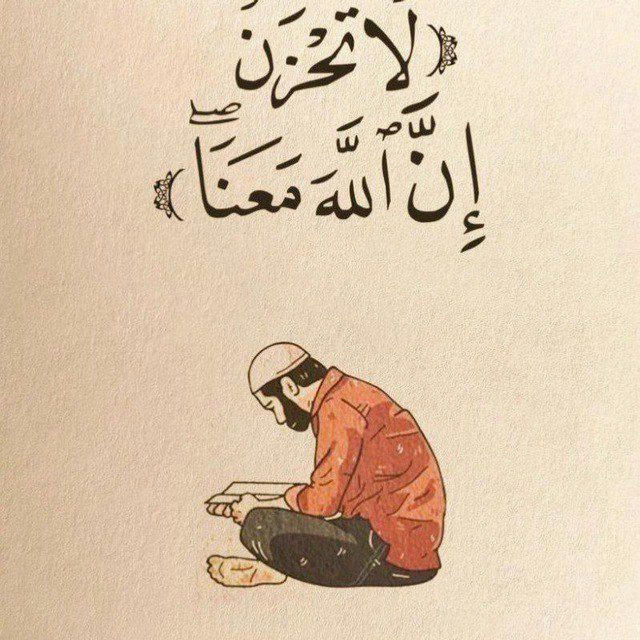 ﴿لَا تَحْزَنْ
إِنَّ ٱللَّهَ مَعَنَاۖ﴾